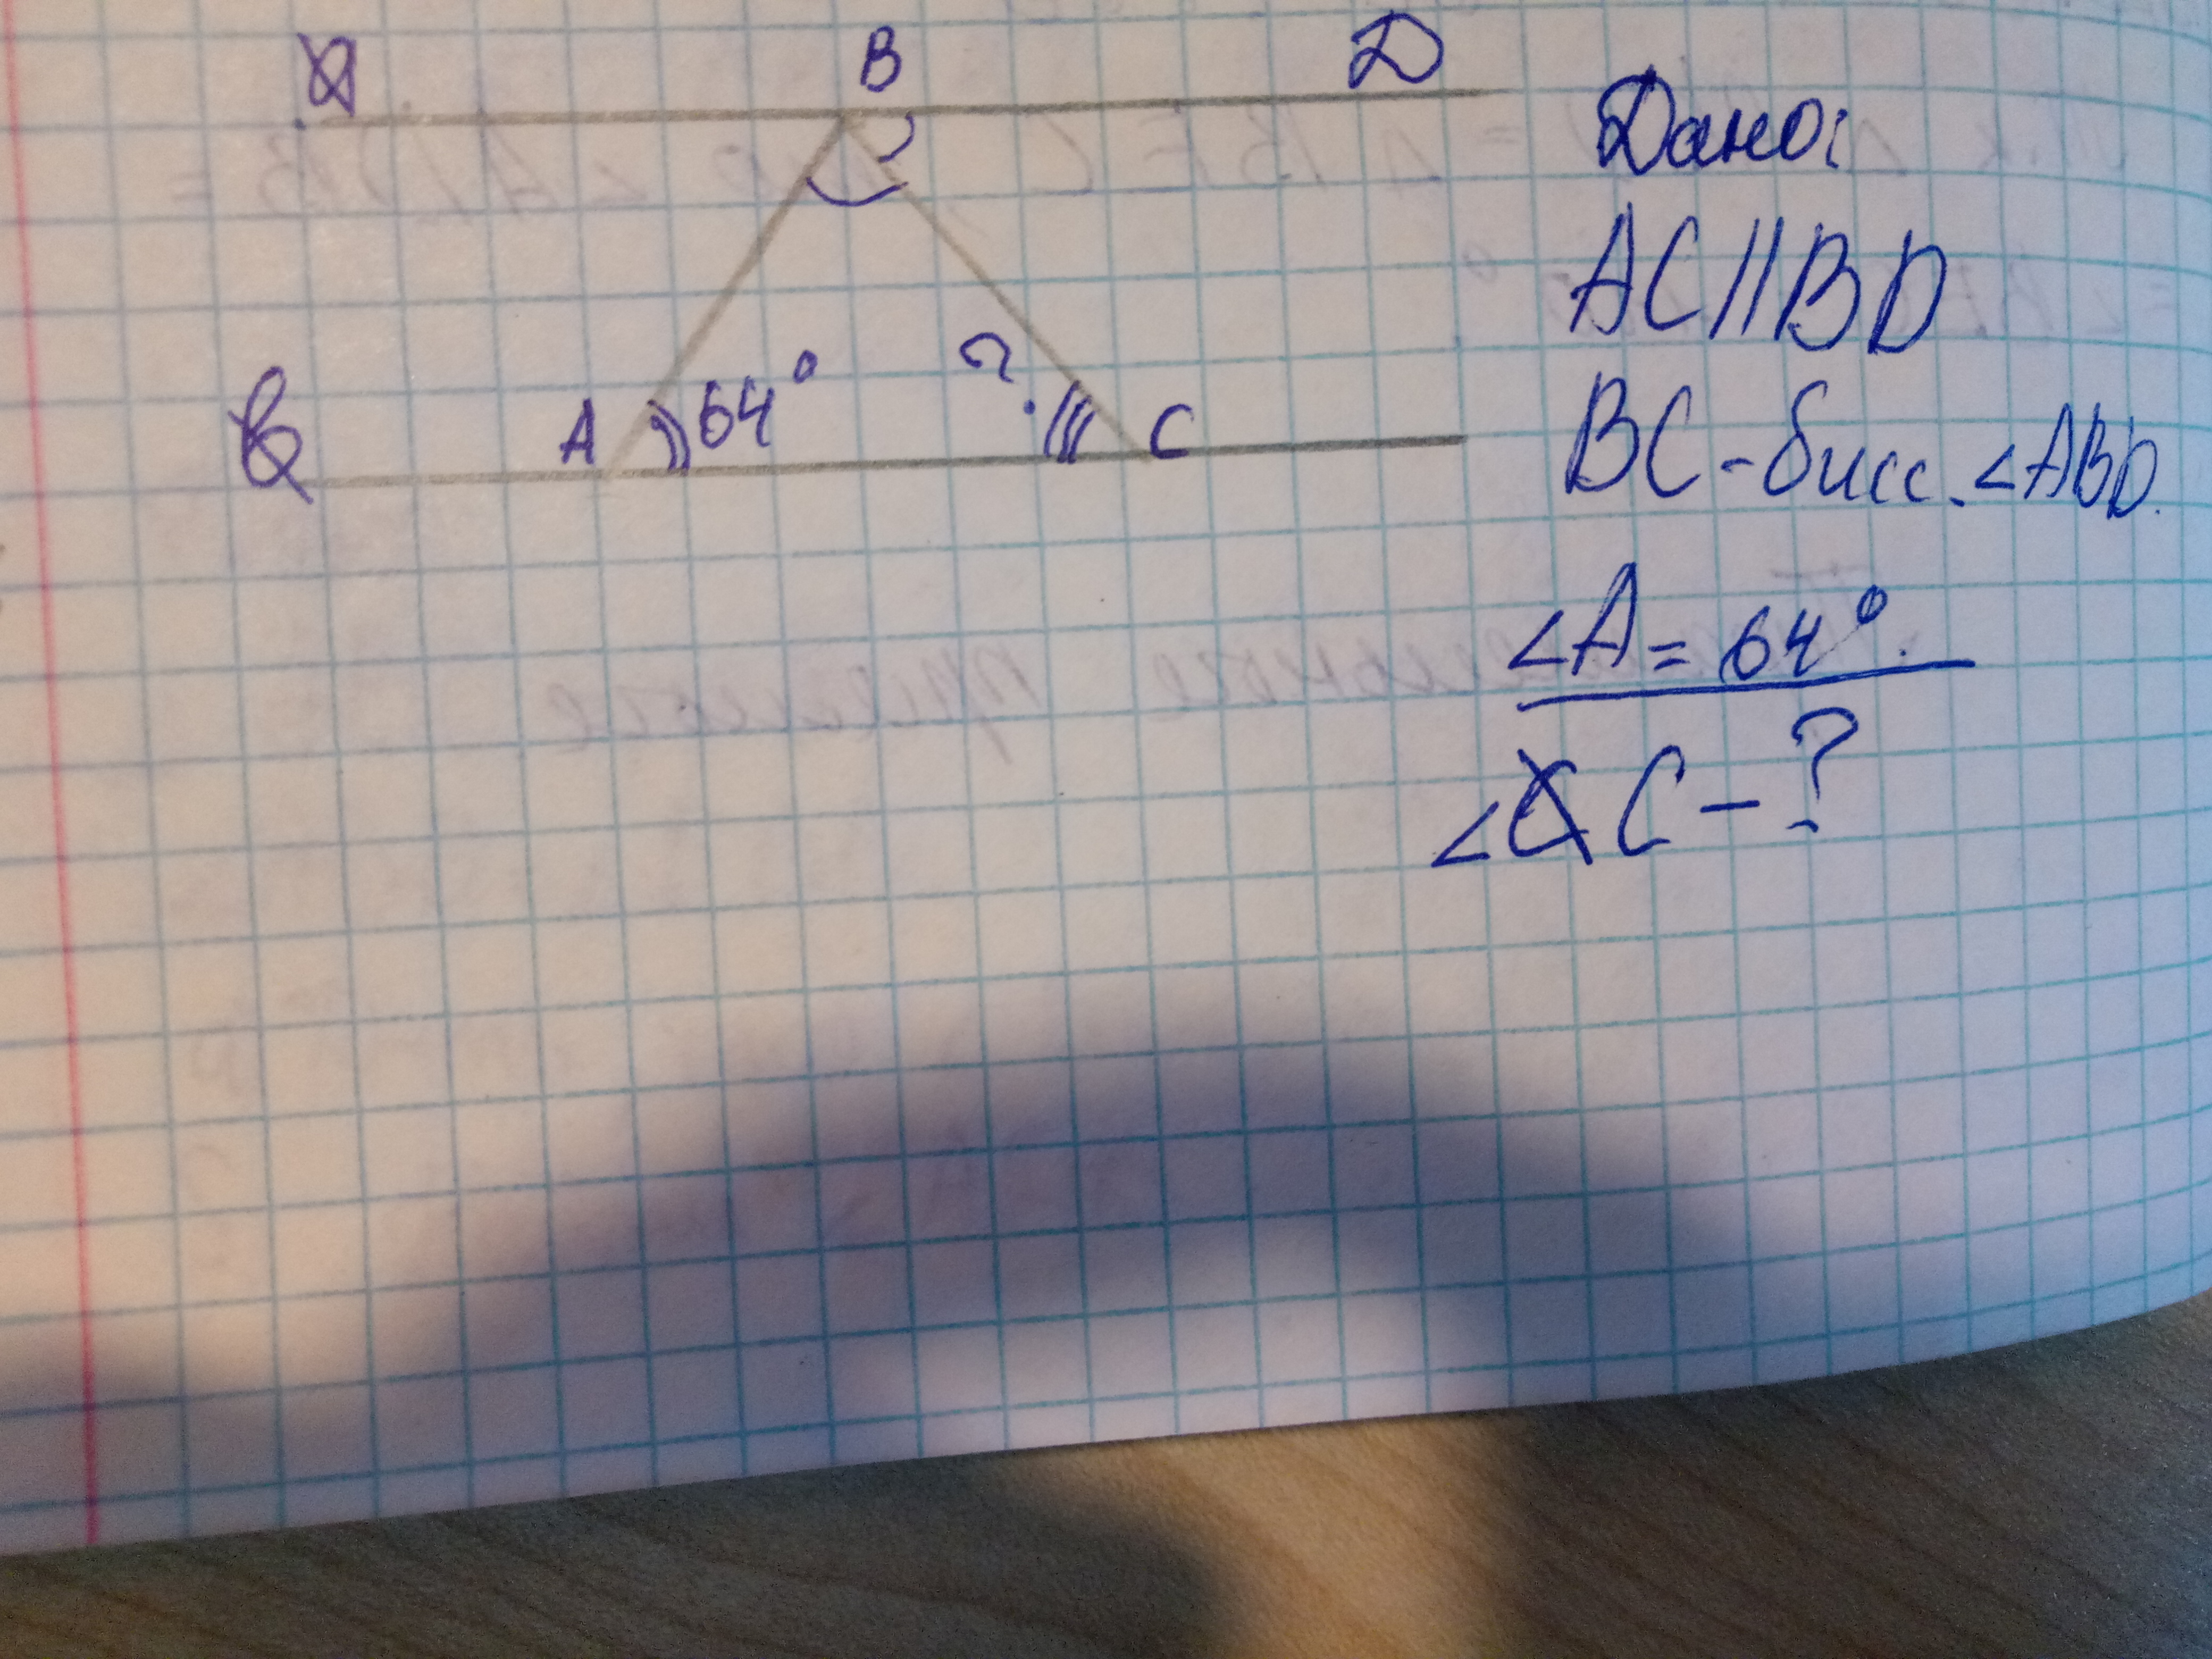 B D
A 64° ? C
Дано:
AC||BD
BC - бисс. ∠ABD.
∠A = 64°.
∠C - ?